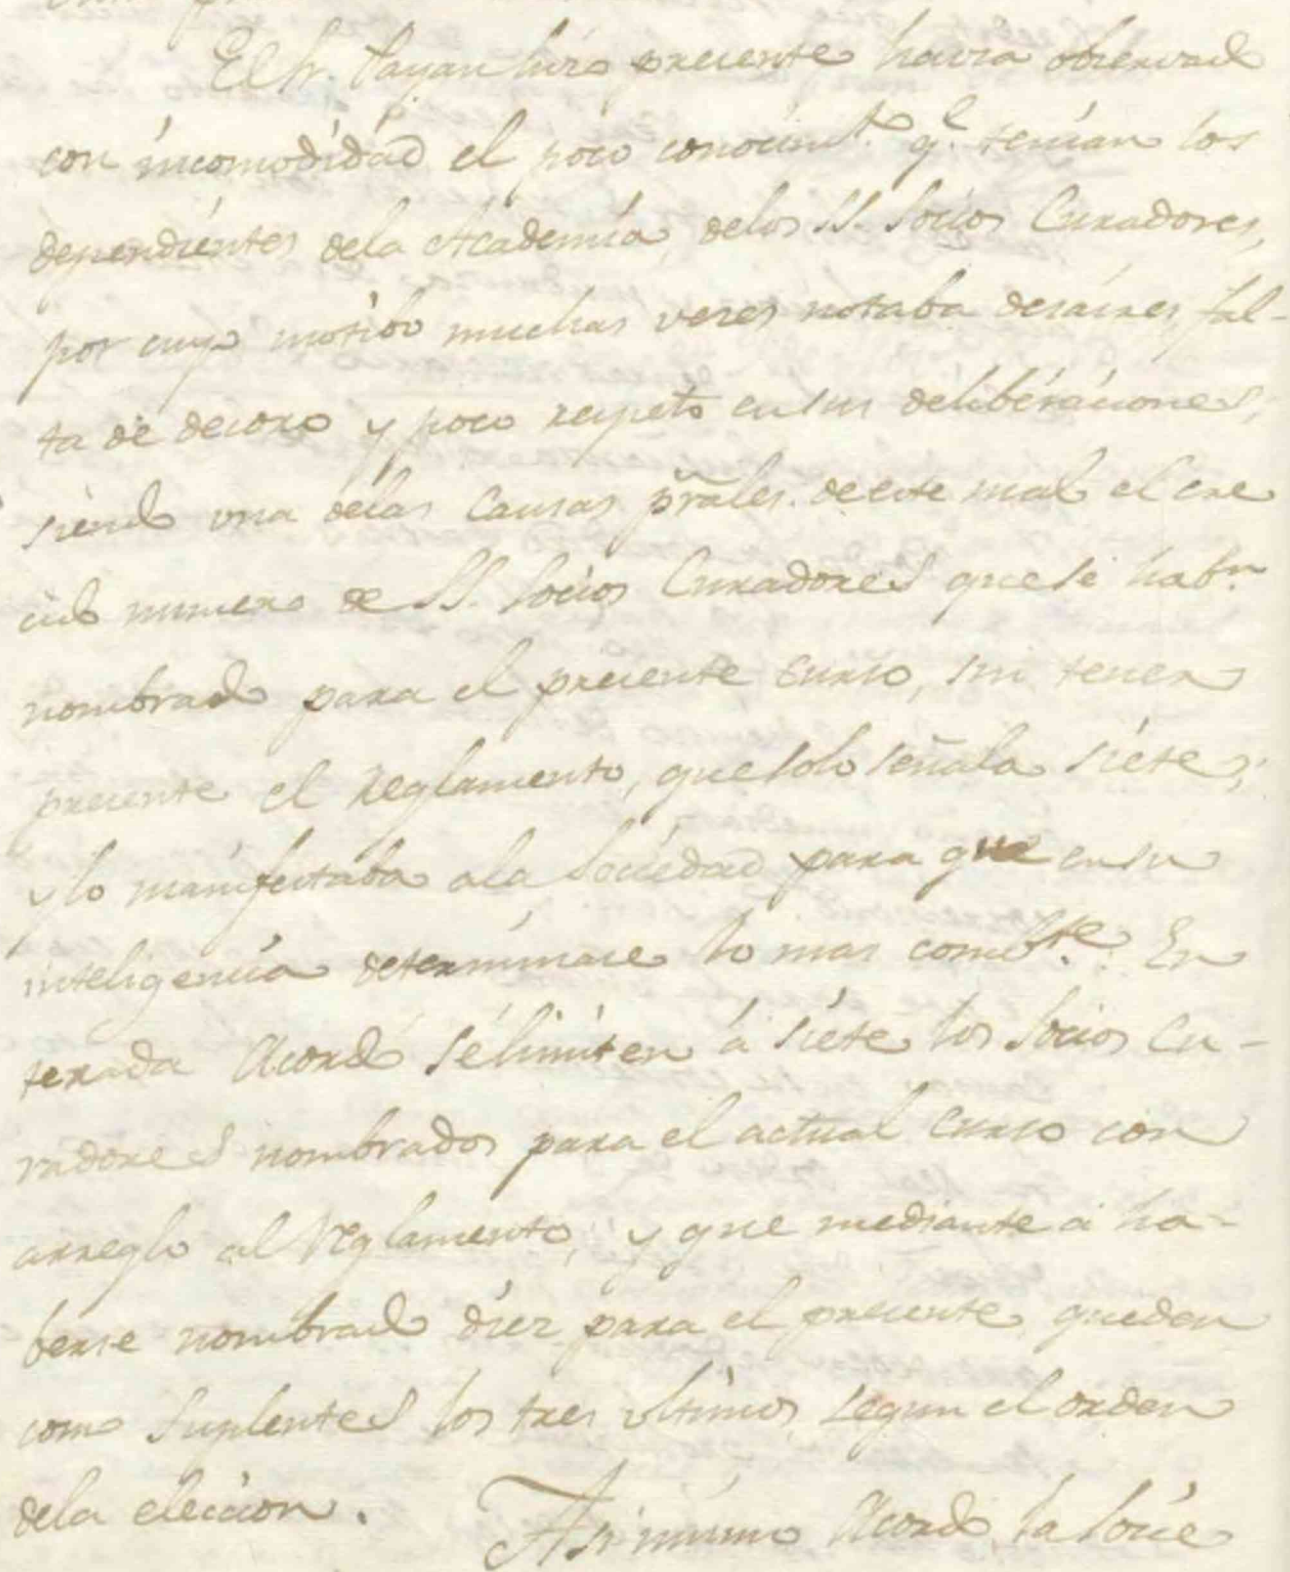 El Sr. Payan hizo presente havia observado
con incomodidad el poco conocimto. qe. tenian los
dependientes dela Academia, delos SS. Socios Curadores,
por cuyo motibo muchas veces notaba desaires, fal-
ta de decoro y poco respeto en sus deliberaciones;
siendo una delas Causas prales. de este mal el cre
cido numero de SS. Socios Curadores que se habn.
nombrado para el presente curso, sin tener
presente el Reglamento, que solo señala siete;
y lo manifestaba ala Sociedad para que en su
inteligencia determinase lo mas combte. En
terada Acordó se limiten á siete los Socios Cu-
radores nombrados para el actual Curso con
arreglo al Reglamento, y que mediante á ha-
berse nombrado diez para el presente queden
como Suplentes los tres ultimos, segun el orden
dela eleccion. Asi mismo Acordó la Socie